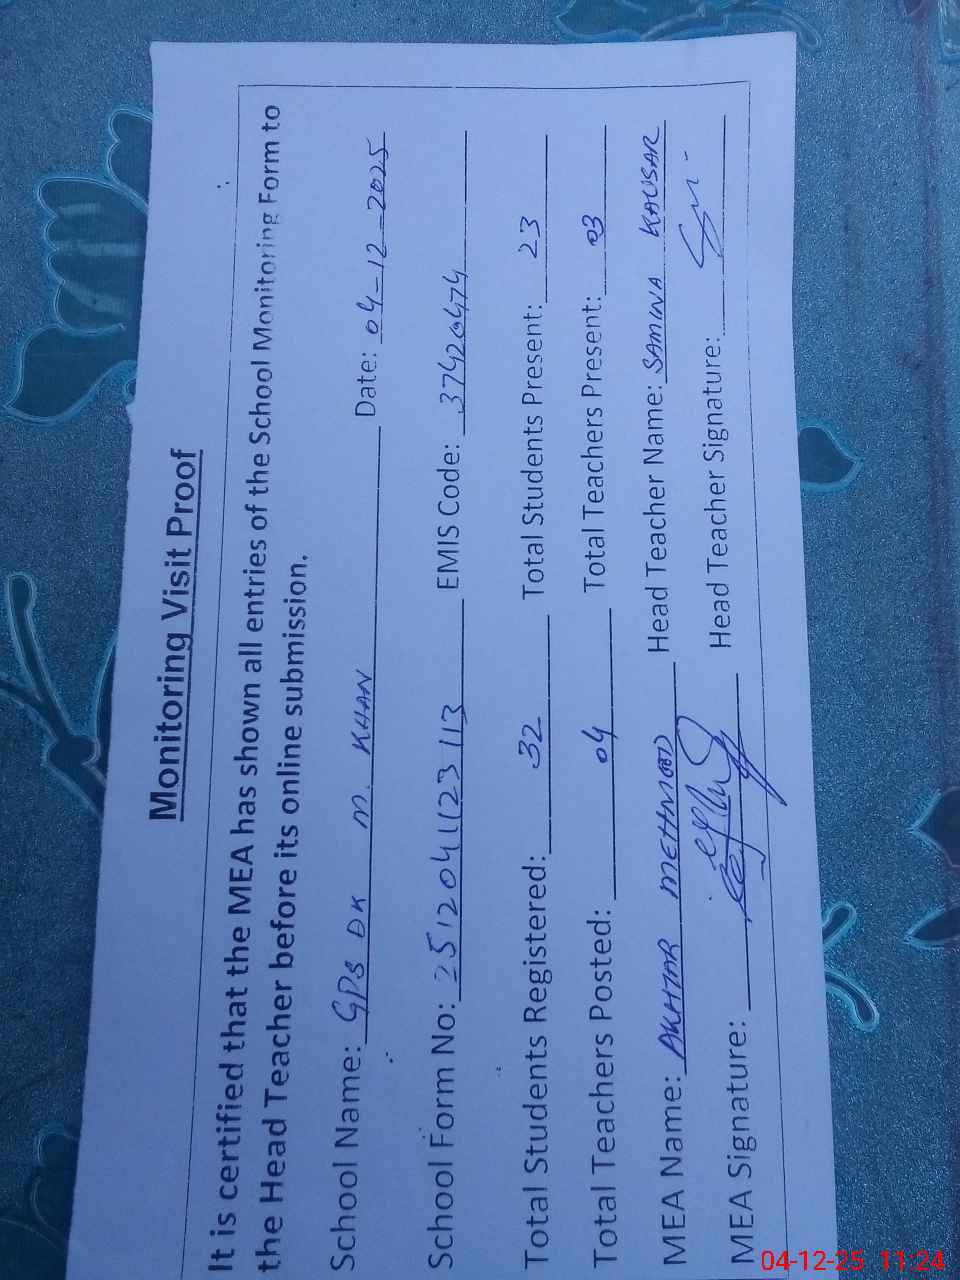 Monitoring Visit Proof
It is certified that the MEA has shown all entries of the School Monitoring Form to
the Head Teacher before its online submission.
School Name: GPS DK M. KHAN Date: 04-12-2025
School Form No: 2512041123113 EMIS Code: 37420474
Total Students Registered: 32 Total Students Present: 23
Total Teachers Posted: 04 Total Teachers Present: 03
MEA Name: AKHTAR MEHMOOD Head Teacher Name: SAMINA KAUSAR
MEA Signature: Head Teacher Signature:
04-12-25 11:24